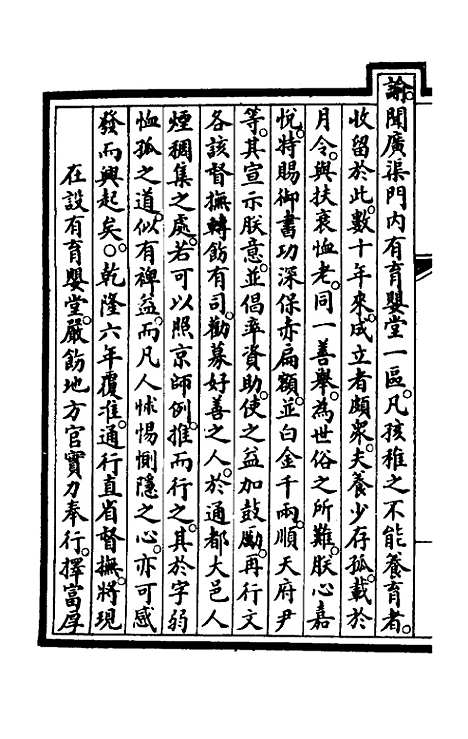 諭聞廣渠門內有育嬰堂一區。凡孩稚之不能養育者。
收留於此。數十年來。成立者頗衆。夫養少存孤。載於
月令。與扶衰恤老。同一善舉。為世俗之所難。朕心嘉
悅。特賜御書功深保赤扁額。並白金千兩。順天府尹
等。其宣示朕意。並倡率資助。使之益加鼓勵。再行文
各該督撫轉飭有司。勸募好善之人。於通都大邑人
煙稠集之處。若可以照京師例。推而行之。其於字弱
恤孤之道。似有裨益。而凡人怵惕惻隱之心。亦可感
發而興起矣。○乾隆六年覆准。通行直省督撫。將現
在設有育嬰堂。嚴飭地方官實力奉行。擇富厚